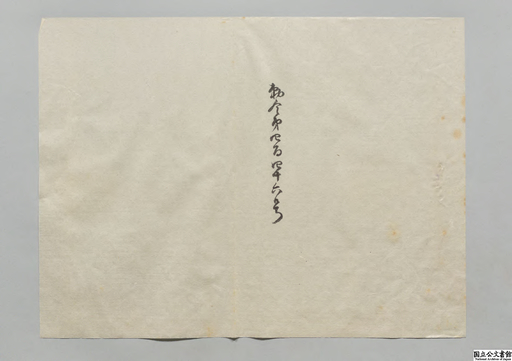 勅令第四百四十六号
国立公文書館
National Archives of Japan